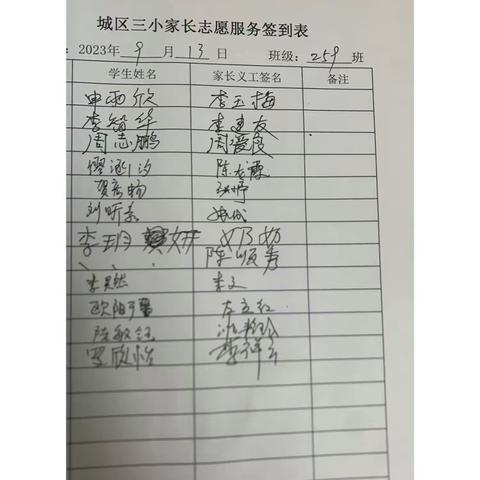 城区三小家长志愿服务签到表
：2023年 9 月 13 日 班级：259 班
学生姓名 家长义工签名 备注
申雨欣 李玉梅
李智华 李建友
周志鹏 周爱良
缪泓汐 陈龙霖
贺彦畅
刘昕
李玥妍 奶奶
陈顺秀
李昊然 李文
欧阳 左立红
陈敏钰
罗欣怡 李祥云